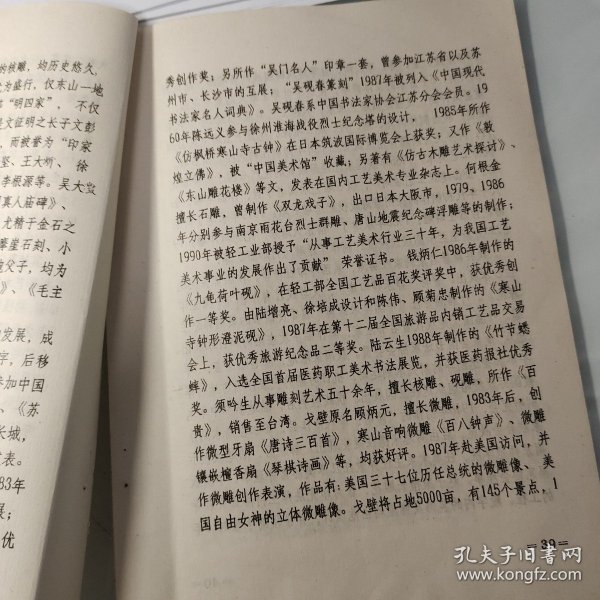 的核雕，均历史悠久，
为盛行，仅东山一地
"明四家"，不仅
是文征明之长子文彭
，而被誉为"印家
坚、王大炘、徐
李根源等。吴大
真人庙碑》、
尤精于金石之
星石刻、小
父子，均为
》、《毛主
发展，成
字，后移
参加中国
、《苏
长城，
发表。
83年
展；
优
秀创作奖；另所作"吴门名人"印章一套，曾参加江苏省以及苏
州市、长沙市的互展；"吴砚春篆刻"1987年被列入《中国现代
书法家名人词典》。吴砚春系中国书法家协会江苏分会会员。19
60年陈远义参与徐州淮海战役烈士纪念塔的设计， 1985年所作
《仿枫桥寒山寺古钟》在日本筑波国际博览会上获奖；又作《敦
煌立佛》，被"中国美术馆"收藏；另著有《仿古木雕艺术探讨》、
《东山雕花楼》等文，发表在国内工艺美术专业杂志上。何根金
擅长石雕，曾制作《双龙戏子》，出口日本大阪市，1979、1986
年分别参与南京雨花台烈士群雕、唐山地震纪念碑浮雕等的制作；
1990年被轻工业部授予"从事工艺美术行业三十年，为我国工艺
美术事业的发展作出了贡献" 荣誉证书。 钱炳仁1986年制作的
《九龟荷叶砚》，在轻工部全国工艺品百花奖评奖中，获优秀创
作一等奖。由陆增亮、徐培成设计和陈伟、顾菊忠制作的《寒山
寺钟形澄泥砚》，1987年在第十二届全国旅游品内销工艺品交易
会上，获优秀旅游纪念品二等奖。陆云生1988年制作的《竹节蟋
蟀》，入选全国首届医药职工美术书法展览，并获医药报社优秀
奖。须吟生从事雕刻艺术五十余年，擅长核雕、砚雕，所作《百
贵》，销售至台湾。戈壁原名顾炳元，擅长微雕，1983年后，创
作微型牙扇《唐诗三百首》，寒山音响微雕《百八钟声》、微雕
镶嵌檀香扇《琴棋诗画》等，均获好评。1987年赴美国访问，并
作微雕创作表演，作品有：美国三十七位历任总统的微雕像、 美
国自由女神的立体微雕像。戈壁将占地5000亩，有145个景点，1
—39—
孔夫子旧书网
www.kongfz.com